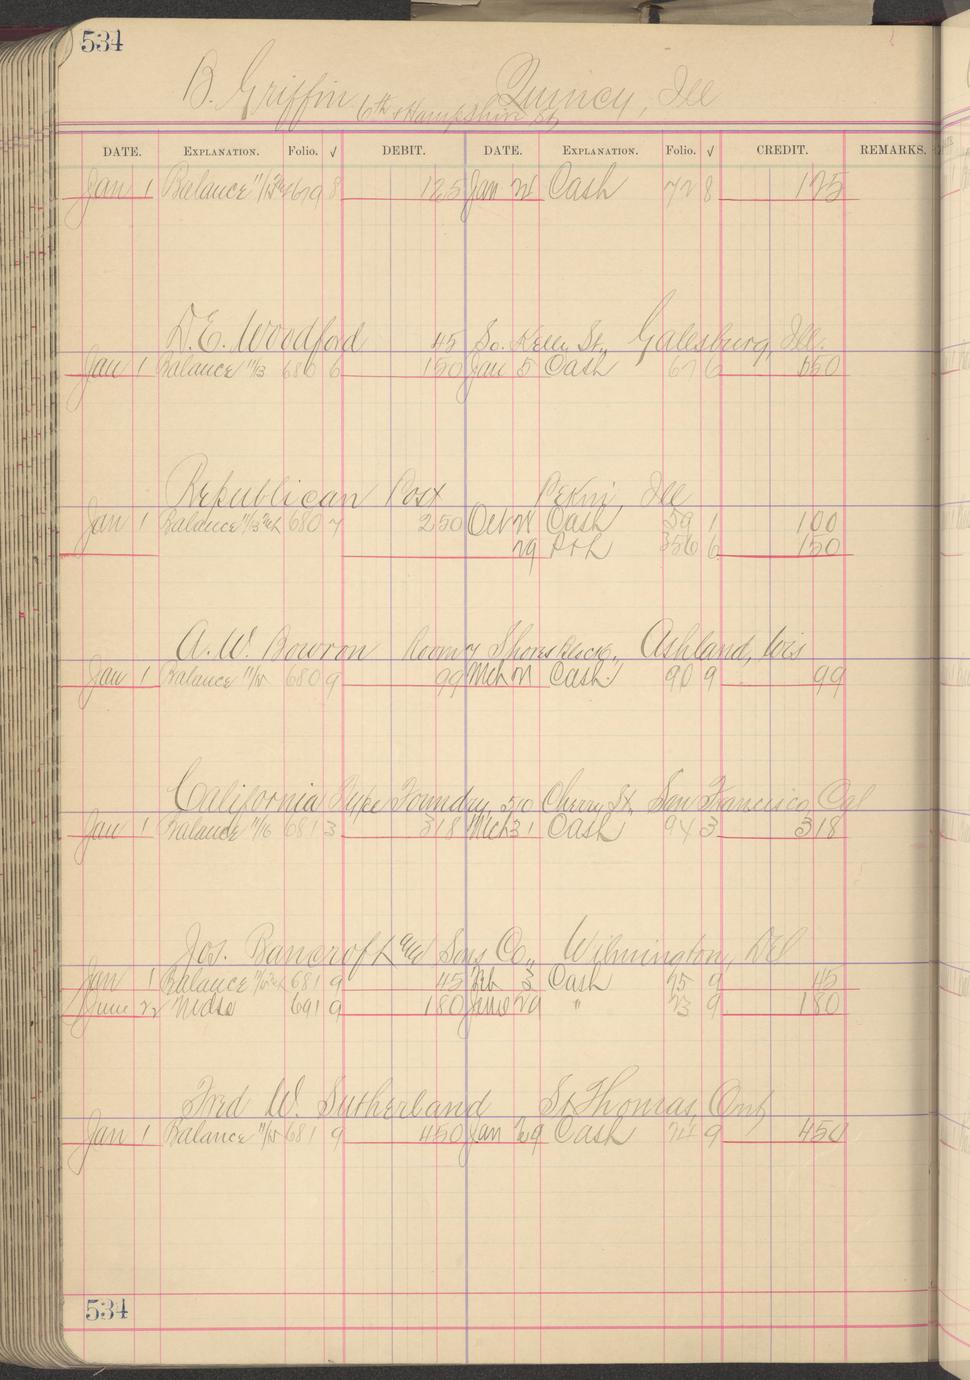 534
B. Griffin Quincy, Ill
6th & Hampshire St,
DATE. EXPLANATION. Folio. √ DEBIT. DATE. EXPLANATION. Folio. √ CREDIT. REMARKS.
Jan 1 Balance 679 8 125 Jan Cash 72 8 125
D.E. Woodford 45 So. Kellu St., Galesburg, Ill.
Jan 1 Balance 11/3 680 6 150 Jan 5 Cash 67 6 150
Republican Post Pekin Ill
Jan 1 Balance 680 7 250 Oct Cash 59 1 100
29 356 6 150
A. W. Bowron Room 7 Shores Blk'g., Ashland, Wis
Jan 1 Balance 680 9 99 Mch 21 Cash 90 9 99
California Type Foundry, 510 Cherry St, San Francisco, Cal
Jan 1 Balance 11/16 681 3 318 Mch 31 Cash 94 3 318
Jos. Bancroft and Sons Co., Wilmington, Del
Jan 1 Balance 681 9 45 Feb 3 Cash 75 9 45
June 22 Mdse 691 9 180 June 29 " 23 9 180
Fred W. Sutherland St Thomas, Ont
Jan 1 Balance 681 9 450 Jan 29 Cash 74 9 450
534